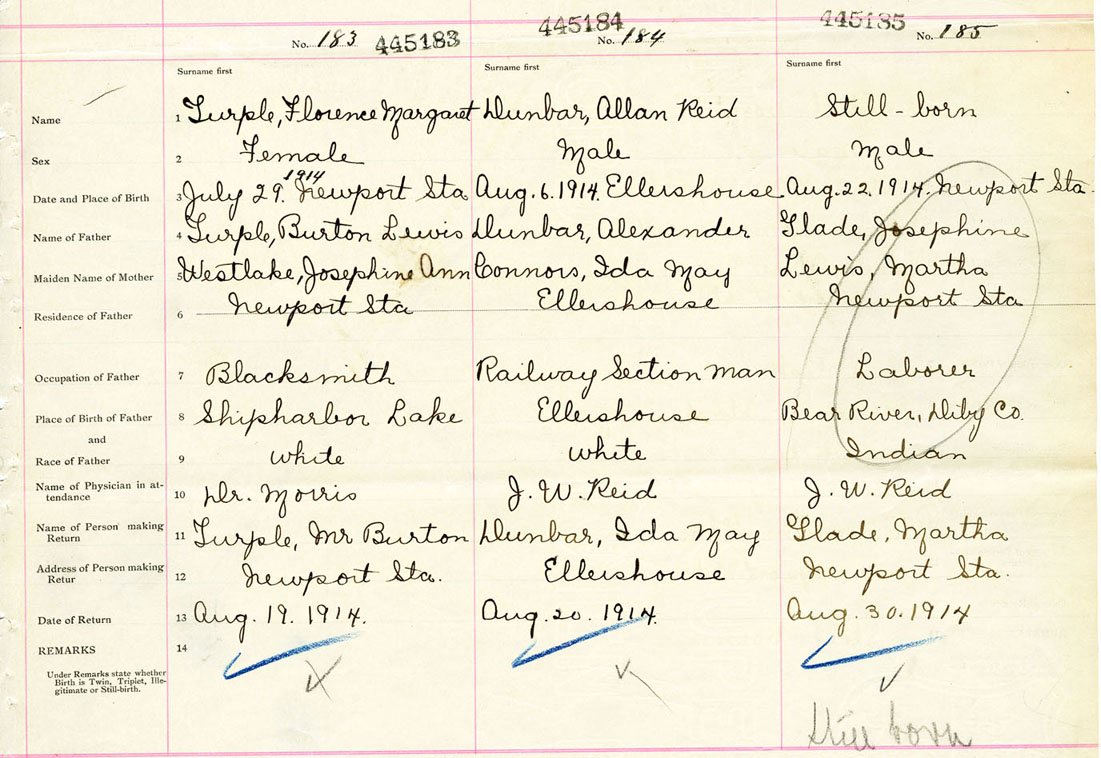 No. 183 445183 445184 No. 184 445185 No. 185
Surname first Surname first Surname first
Name 1 Turple, Florence Margaret Dunbar, Allan Reid Still-born
Sex 2 Female Male Male
Date and Place of Birth 3 July 29. 1914 Newport Sta Aug. 6. 1914. Ellershouse Aug. 22. 1914. Newport Sta.
Name of Father 4 Turple, Burton Lewis Dunbar, Alexander Glade, Josephine
Maiden Name of Mother 5 Westlake, Josephine Ann Connors, Ida May Lewis, Martha
Residence of Father 6 Newport Sta Ellershouse Newport Sta
Occupation of Father 7 Blacksmith Railway Section Man Laborer
Place of Birth of Father 8 Shipharbor Lake Ellershouse Bear River, Diby Co.
and
Race of Father 9 White White Indian
Name of Physician in at-
tendance 10 Dr. Morris J. W. Reid J. W. Reid
Name of Person making
Return 11 Turple, Mr Burton Dunbar, Ida May Glade, Martha
Address of Person making
Retur 12 Newport Sta. Ellershouse Newport Sta.
Date of Return 13 Aug. 19. 1914. Aug. 20. 1914. Aug. 30. 1914
REMARKS 14
Under Remarks state whether
Birth is Twin, Triplet, Ille-
gitimate or Still-birth.
Still born